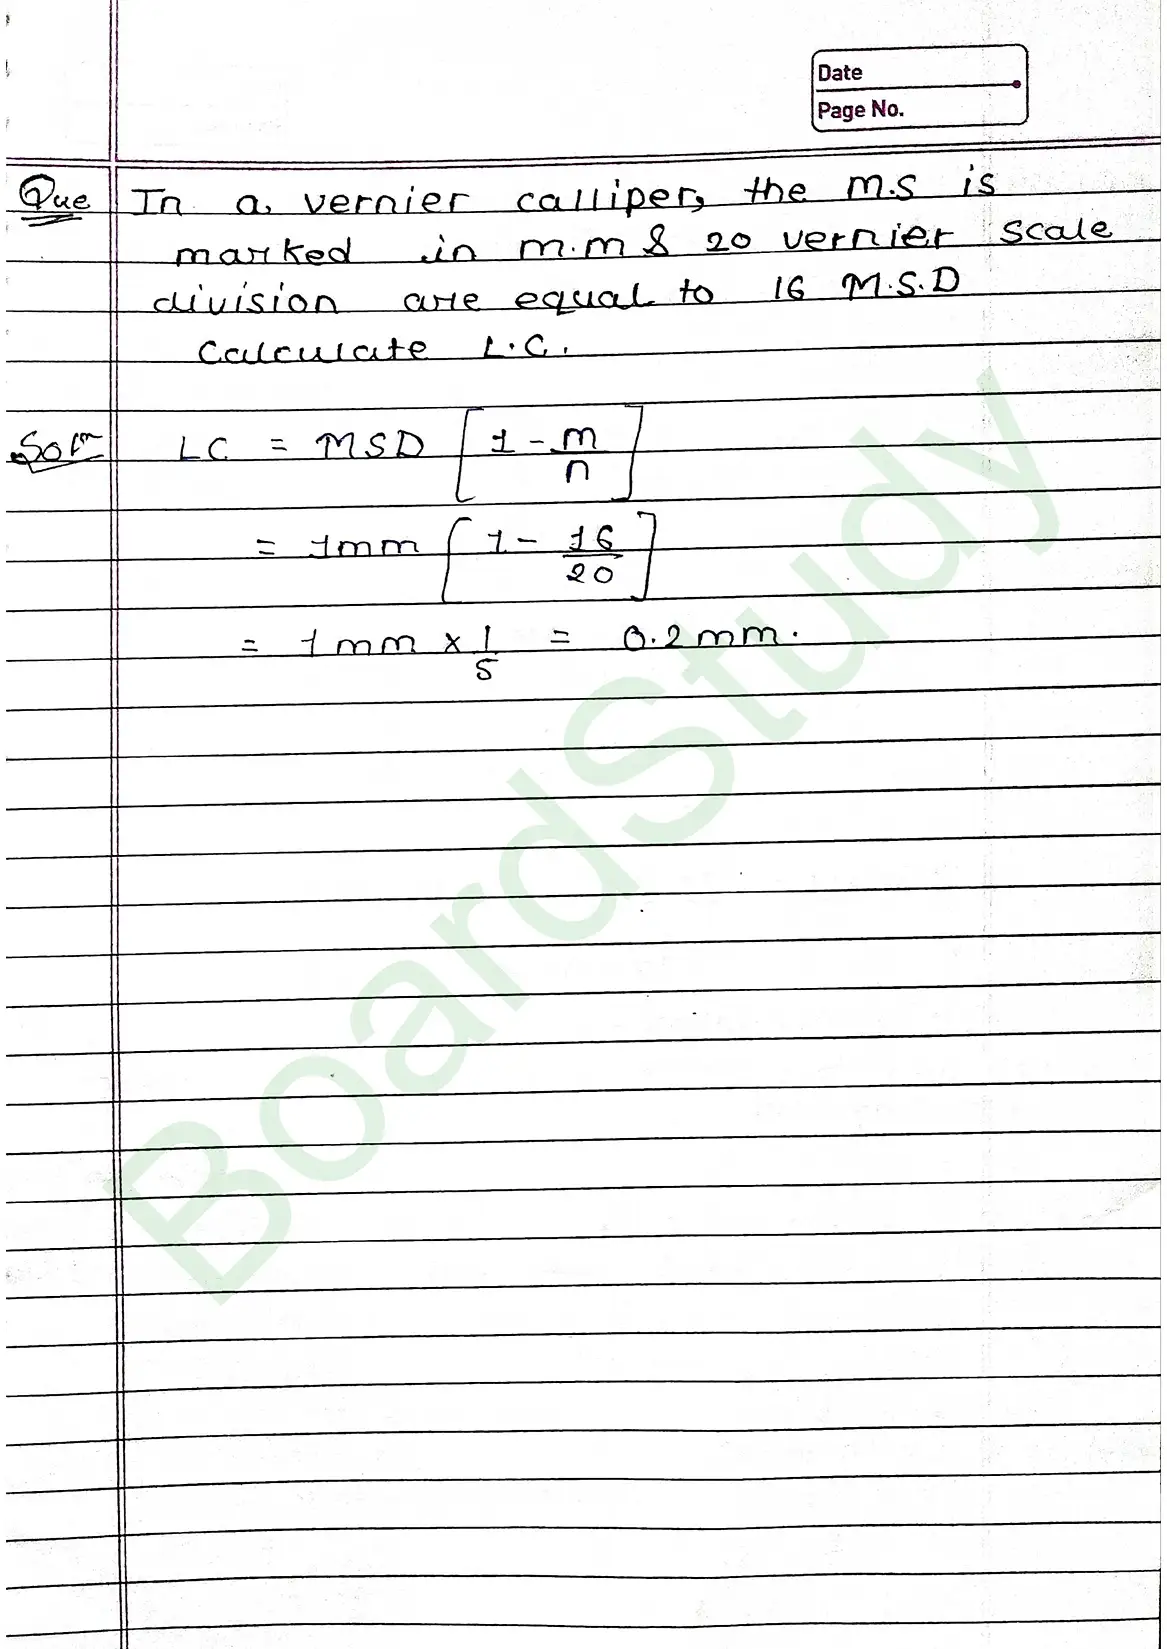 Date
Page No.
Que In a vernier calliper, the M.S is
marked in m.m & 20 vernier scale
division are equal to 16 M.S.D
Calculate L.C.
Solⁿ LC = MSD [1 - m/n]
= 1mm [1 - 16/20]
= 1mm × 1/5 = 0.2mm.
BoardStudy